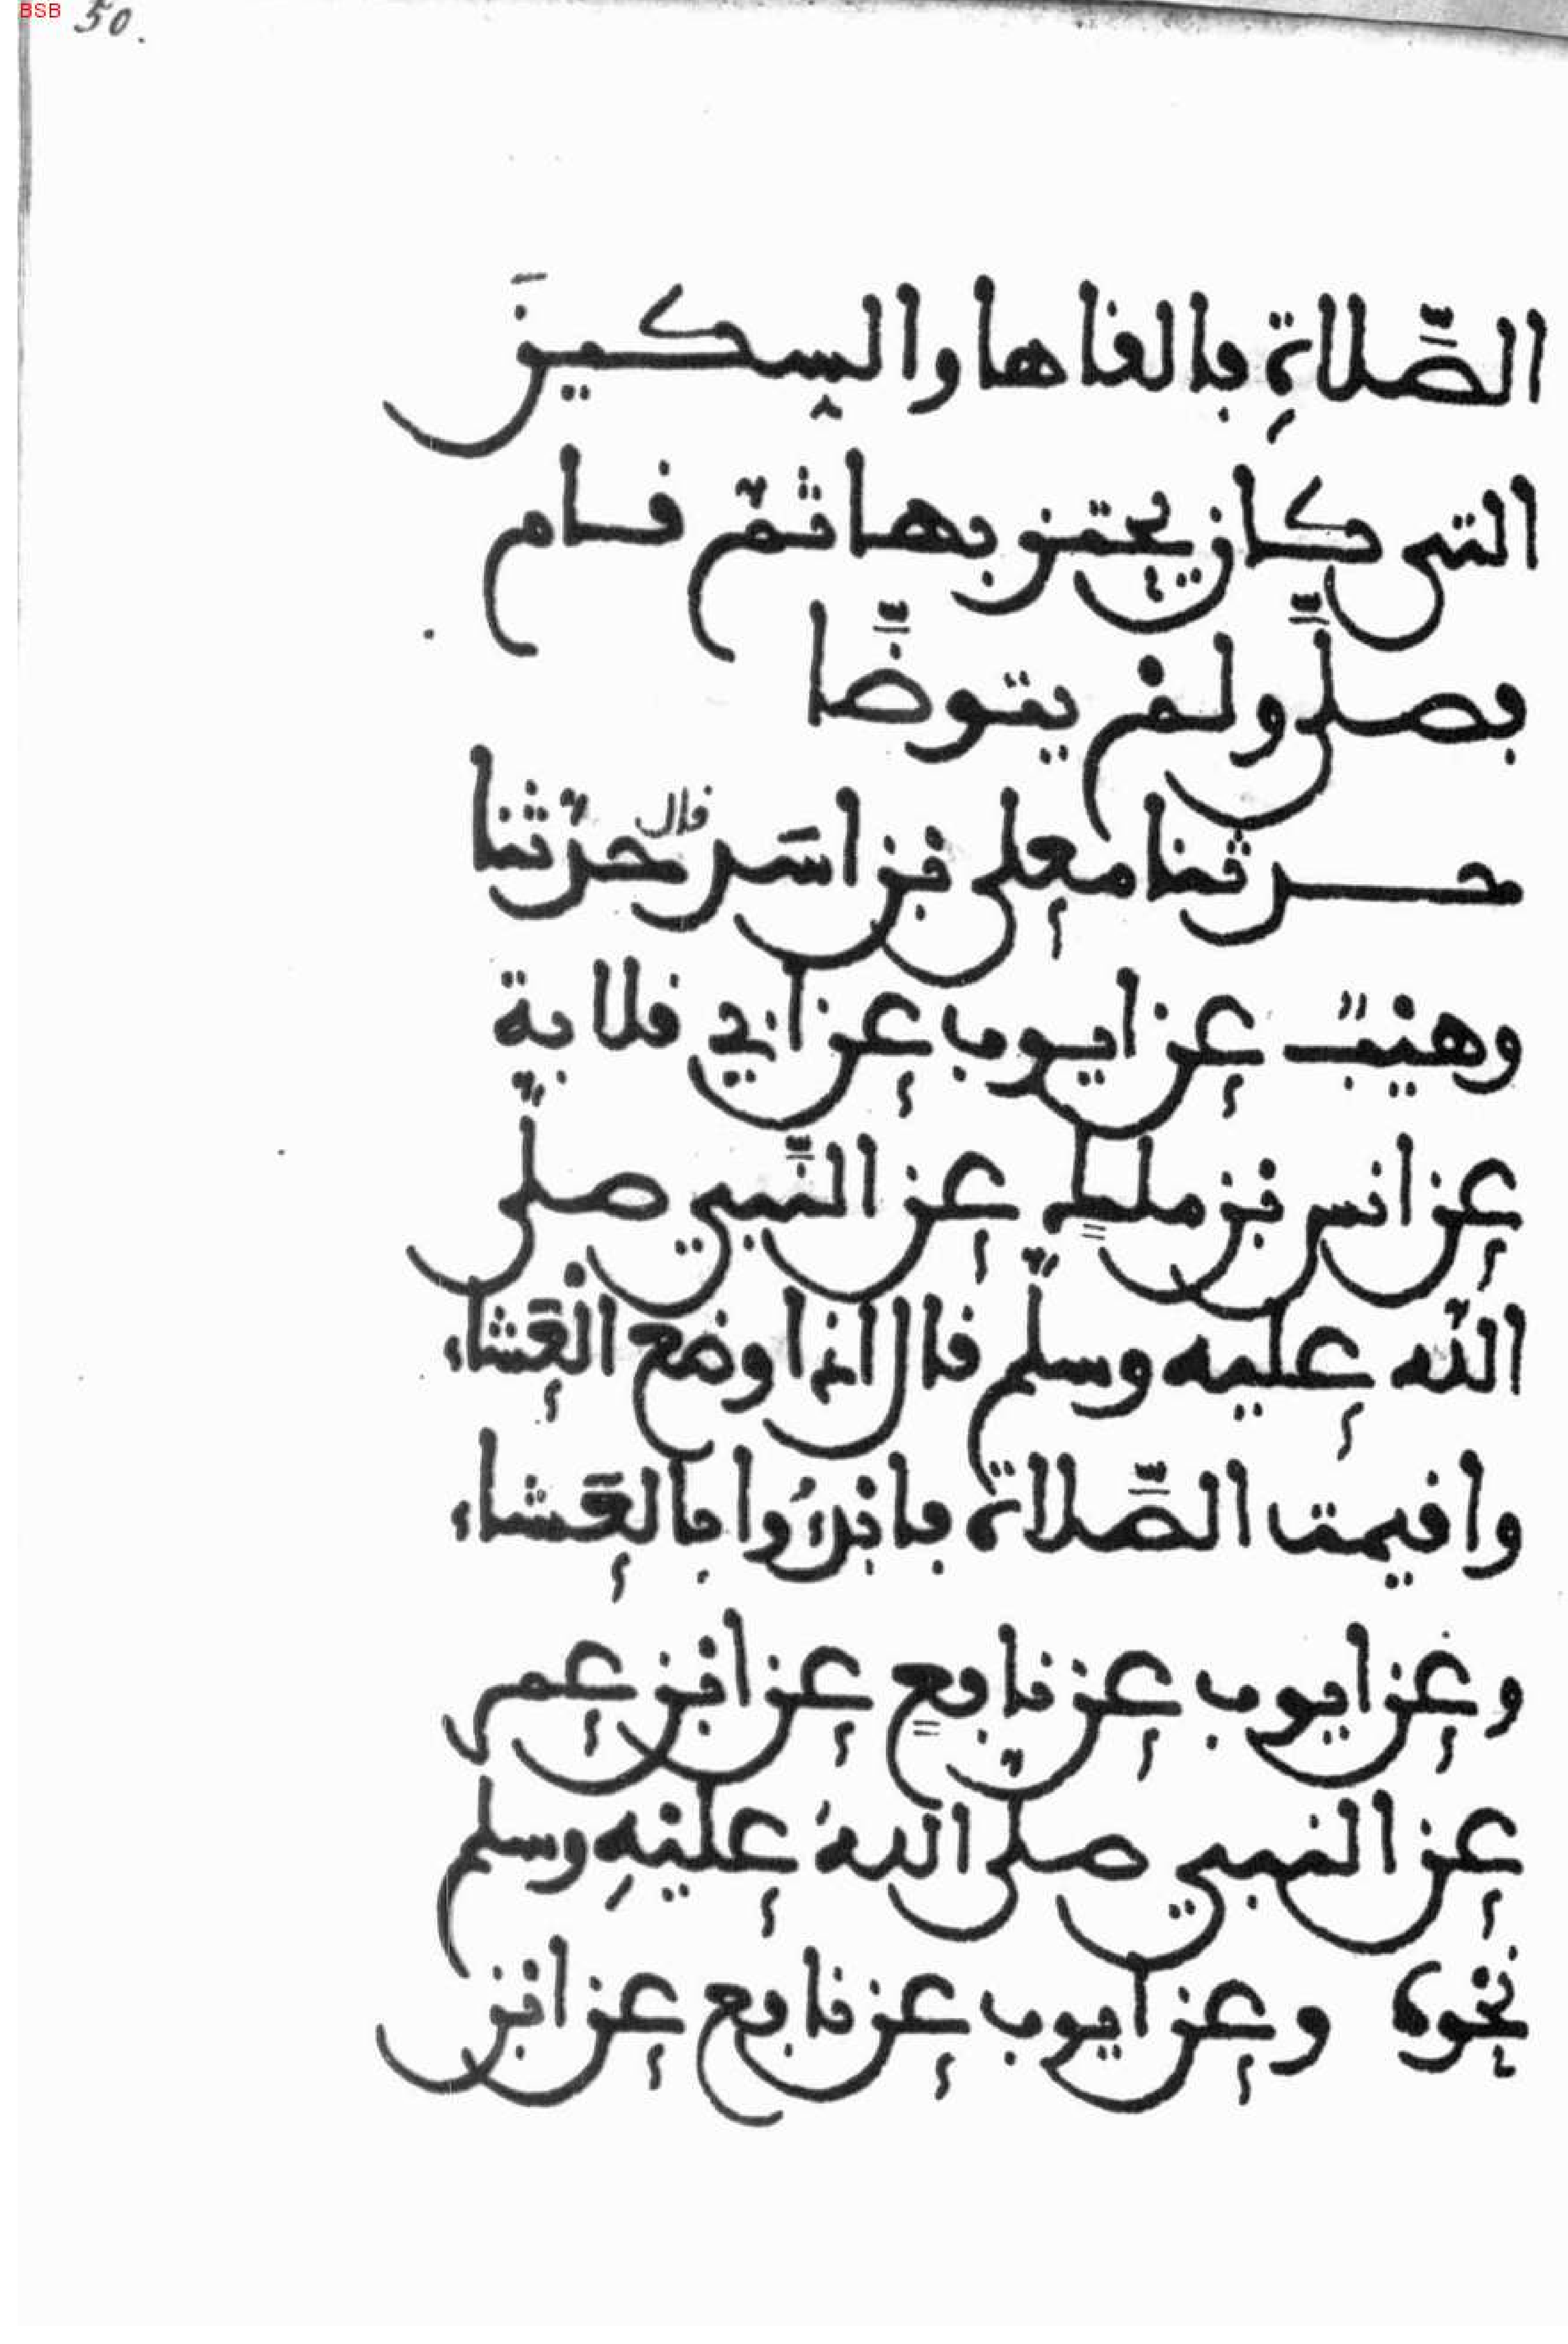 BSB 50.
الصَّلاةِ فالفاها والسكينَ
التى كان يحتز بها ثمّ قام
فصلَّى ولمْ يتوضَّا
حدثنا معلى بن اسَد قال حدّثنا
وهيْبٌ عن ايوب عن ابي قلابة
عن انس بن ملكٍ عن النَّبي صلّى
الله عليه وسلّم قال اذا وضع الْعَشاء
واقيمت الصَّلاة فابْدَءُوا بالعَشاء
وعن ايوب عن نافعٍ عن ابْن عمر
عن النبي صلّى اللهُ عليْهِ وسلم
نحْوه وعن ايوب عن نافع عن ابْن